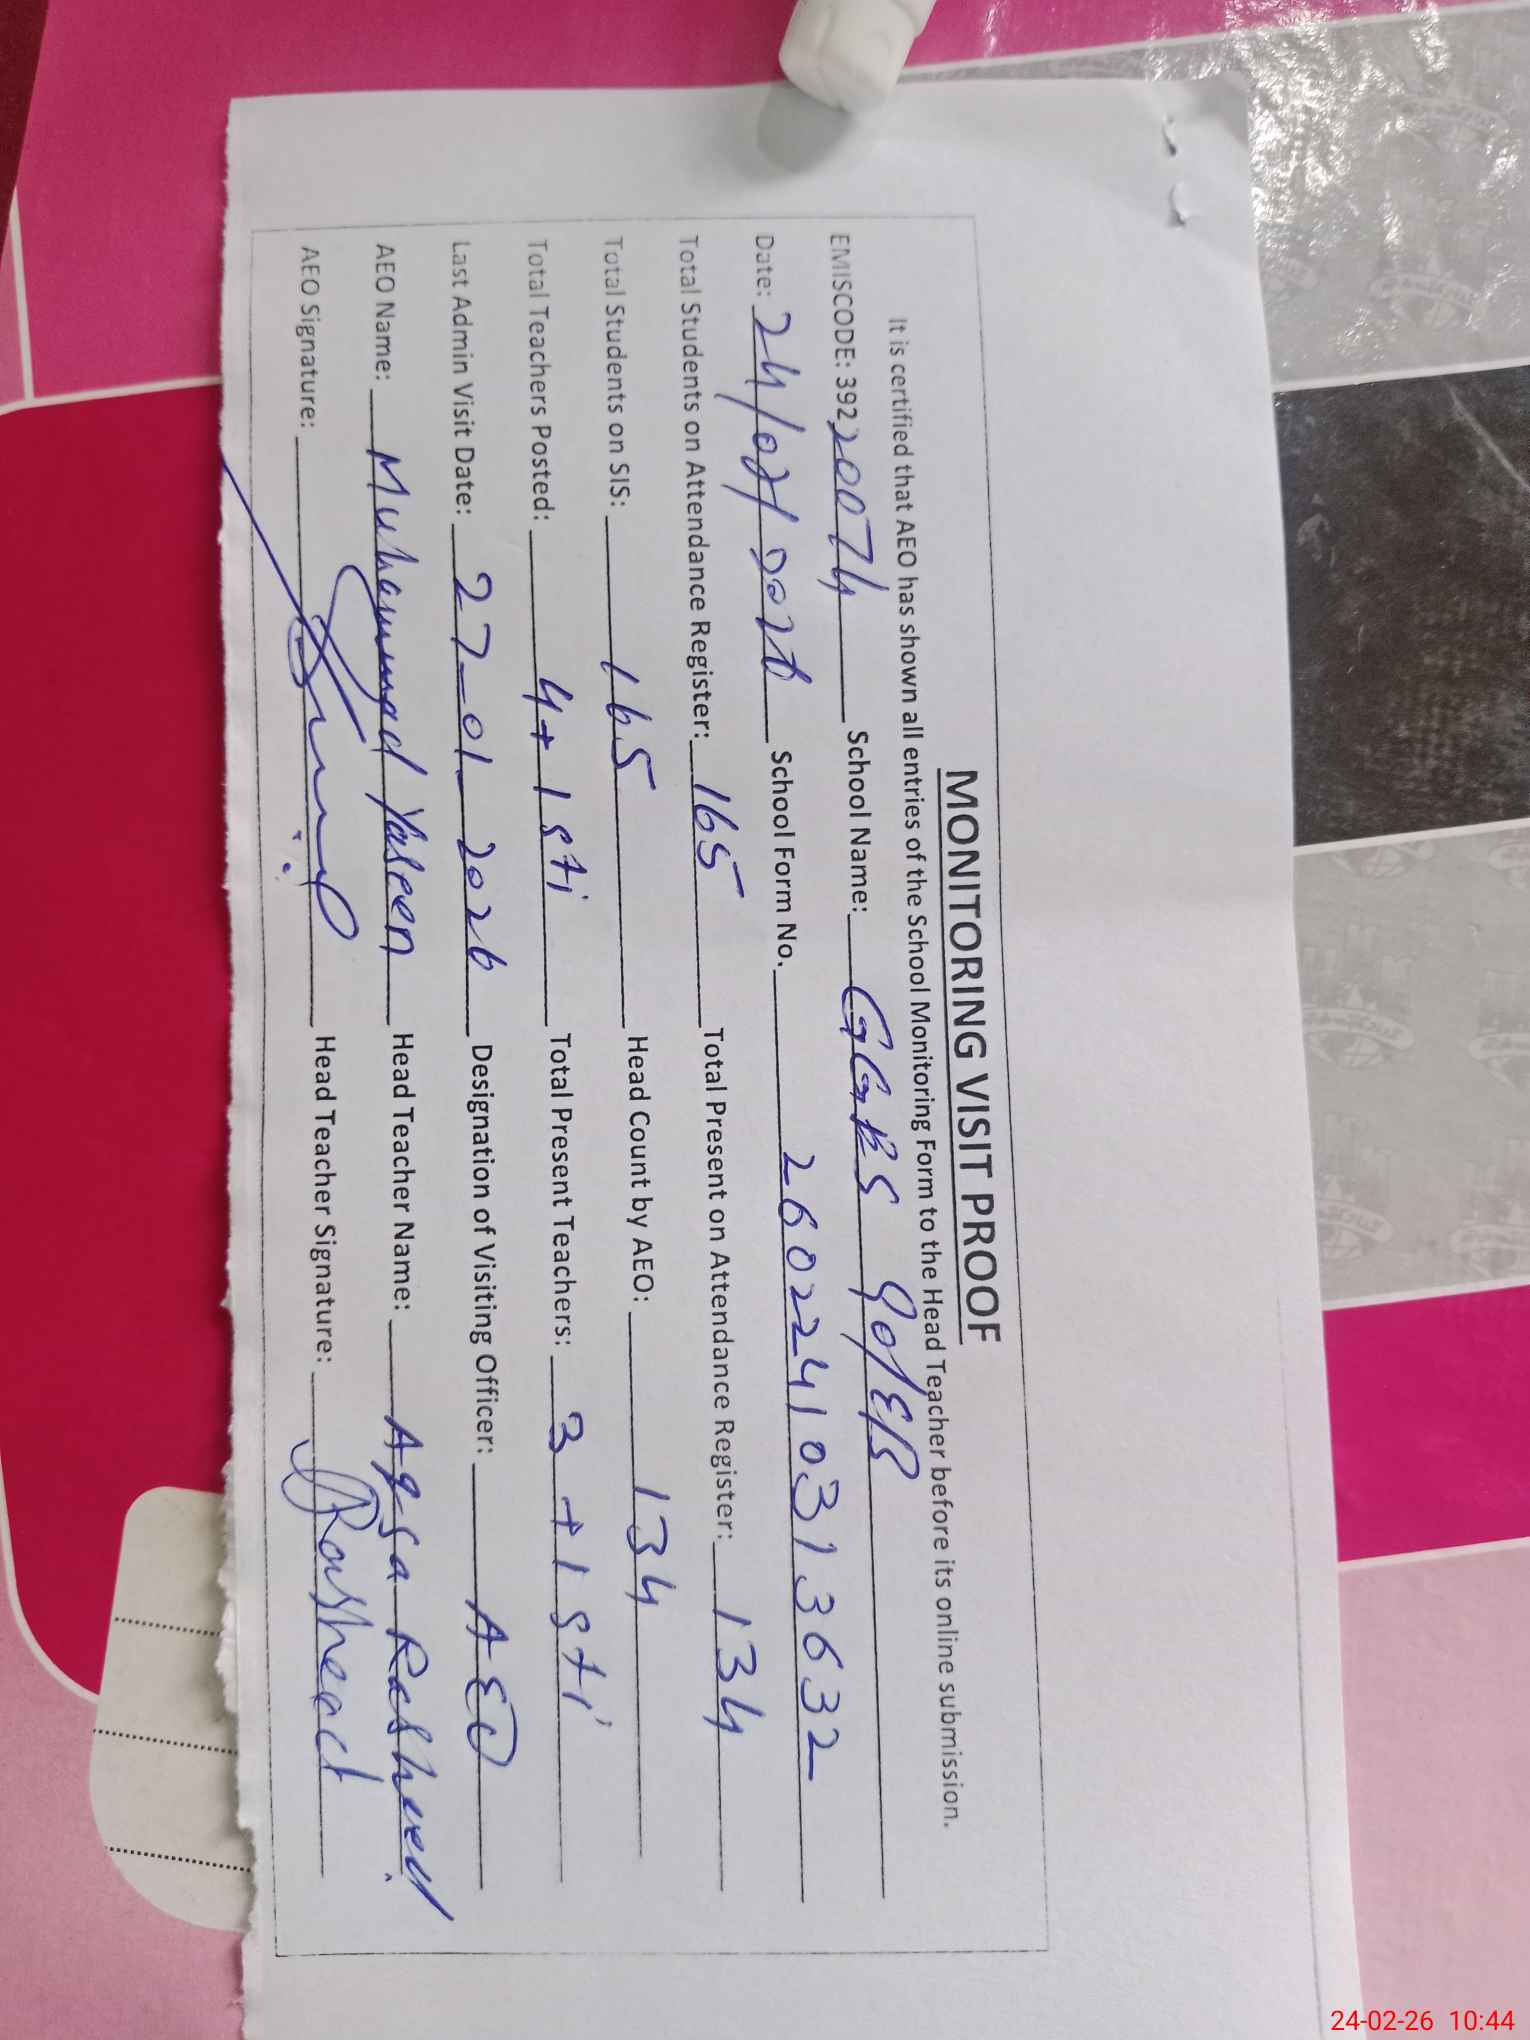 MONITORING VISIT PROOF
It is certified that AEO has shown all entries of the School Monitoring Form to the Head Teacher before its online submission.
EMISCODE: 39220074 School Name: GGPS 90/EB
Date: 24/02/2026 School Form No. 26022410313632
Total Students on Attendance Register: 165 Total Present on Attendance Register: 134
Total Students on SIS: 165 Head Count by AEO: 134
Total Teachers Posted: 4+1sti Total Present Teachers: 3+1sti
Last Admin Visit Date: 27-01-2026 Designation of Visiting Officer: AEO
AEO Name: Muhammad Yaseen Head Teacher Name: Aqsa Rasheed
AEO Signature: Head Teacher Signature: Rasheed
24-02-26 10:44